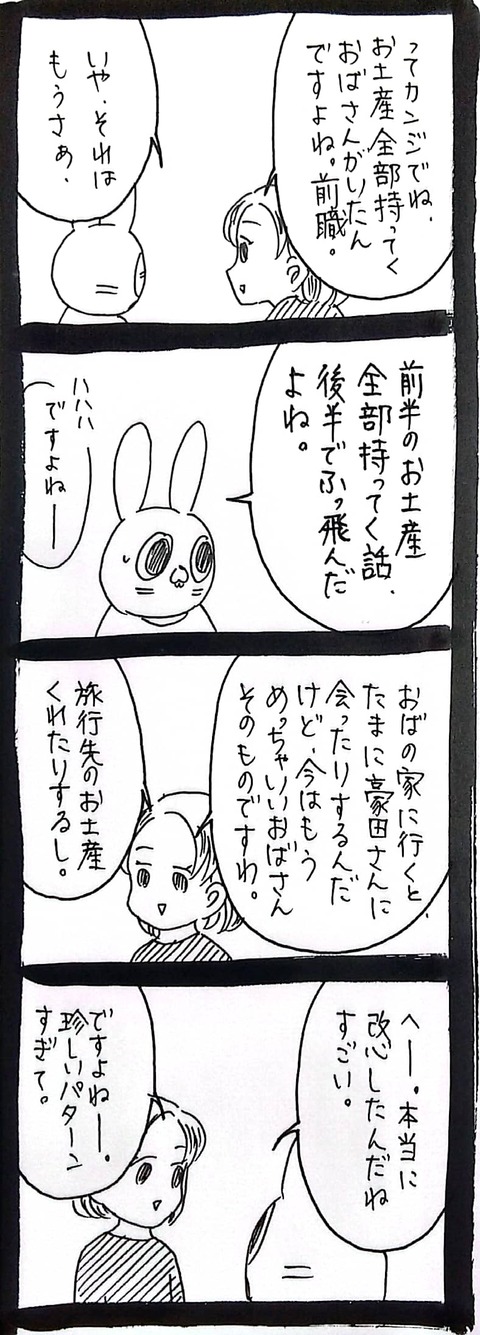 ってカンジでね、
お土産全部持ってく
おばさんがいたん
ですよね。前職。
いや、それは
もうさぁ、
前半のお土産
全部持ってく話、
後半でふっ飛んだ
よね。
ハハハ
ですよねー
おばの家に行くと、
たまに豪田さんに
会ったりするんだ
けど、今はもう
めっちゃいいおばさん
そのものですわ。
旅行先のお土産
くれたりするし。
へー。本当に
改心したんだね
すごい。
ですよねー。
珍しいパターン
すぎて。